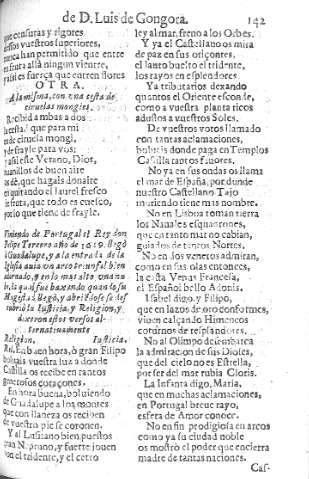 de D. Luis de Gongora. 142
que censuras y rigores
vuestros superiores,
nunca han permitido que entre
fruta allà ningun vientre,
y assi es fuerça que entren flores
OTRA.
A la misma, con una cesta de
ciruelas mongies.
Recibid ambas a dos
la cesta que para mi
de ciruela mongi,
y de frayle para vos:
y assi ese Verano, Dios,
de buen aire
que hagals donaire
quitando el laurel fresco
fruta, que todo es cuesco,
por lo que tiene de frayle.
Viniendo de Portugal el Rey don
Felipe Tercero año de 1619. llegò
a Guadalupe, y a la entrada de la
Iglesia avia un arco triunfal bien
adornado, y en lo mas alto una nu-
be, la qual fue baxando quando su
Magestad llegò, y abriendose se des
cubriò la Iusticia, y Religion, y
dixeron estos versos al-
ternativamente
Religion. Iusticia.
Rel. En buen hora, ò gran Filipo
bolvais vuestra luz a donde
Castilla os recibe en tantos
generosos coraçones.
En hora buena, bolviendo
de Guadalupe a los montes
que con llaneza os reciben
de vuestro pie se coronen.
Y al Lusitano bien puestos
gran Neptuno, y fuerte Jouen
con el tridente, y el cetro
ley al mar, freno a los Orbes.
Y ya el Castellano os mira
de paz en sus orizontes,
el santo buelto el tridente,
los rayos en esplendores.
Ya tributarios dexando
quantos el Oriente esconde,
como a vuestra planta ricos
adustos a vuestros Soles.
De vuestros votos llamado
con tantas aclamaciones,
bolveis donde paga en Templos
Castilla tantos fauores.
No ya en sus ondas os llama
el mar de España, por donde
nuestro Castellano Tajo
muriendo tiene mas nombre.
No en Lisboa toman tierra
los Nauales esquadrones,
que en tanto mar no cabian,
guiados de tantos Nortes.
No en los veneros admiran,
como en sus olas entonces,
la casta Venus Francesa,
el Español bello Adonis.
Isabel digo y Filipo,
que en lazos de oro conformes,
viuen calçando Himeneos
coturnos de resplandores.
No al Olimpo desembarca
la admiracion de sus Dioses,
que del cielo no es Estrella,
por ser del mar rubia Cloris.
La Infanta digo, Maria,
que en muchas aclamaciones,
en Portugal breue rayo,
esfera de Amor conoce.
No en fin prodigiosa en arcos
como ya su ciudad noble
os mostrò el poder que encierra
madre de tantas naciones.
Cas-